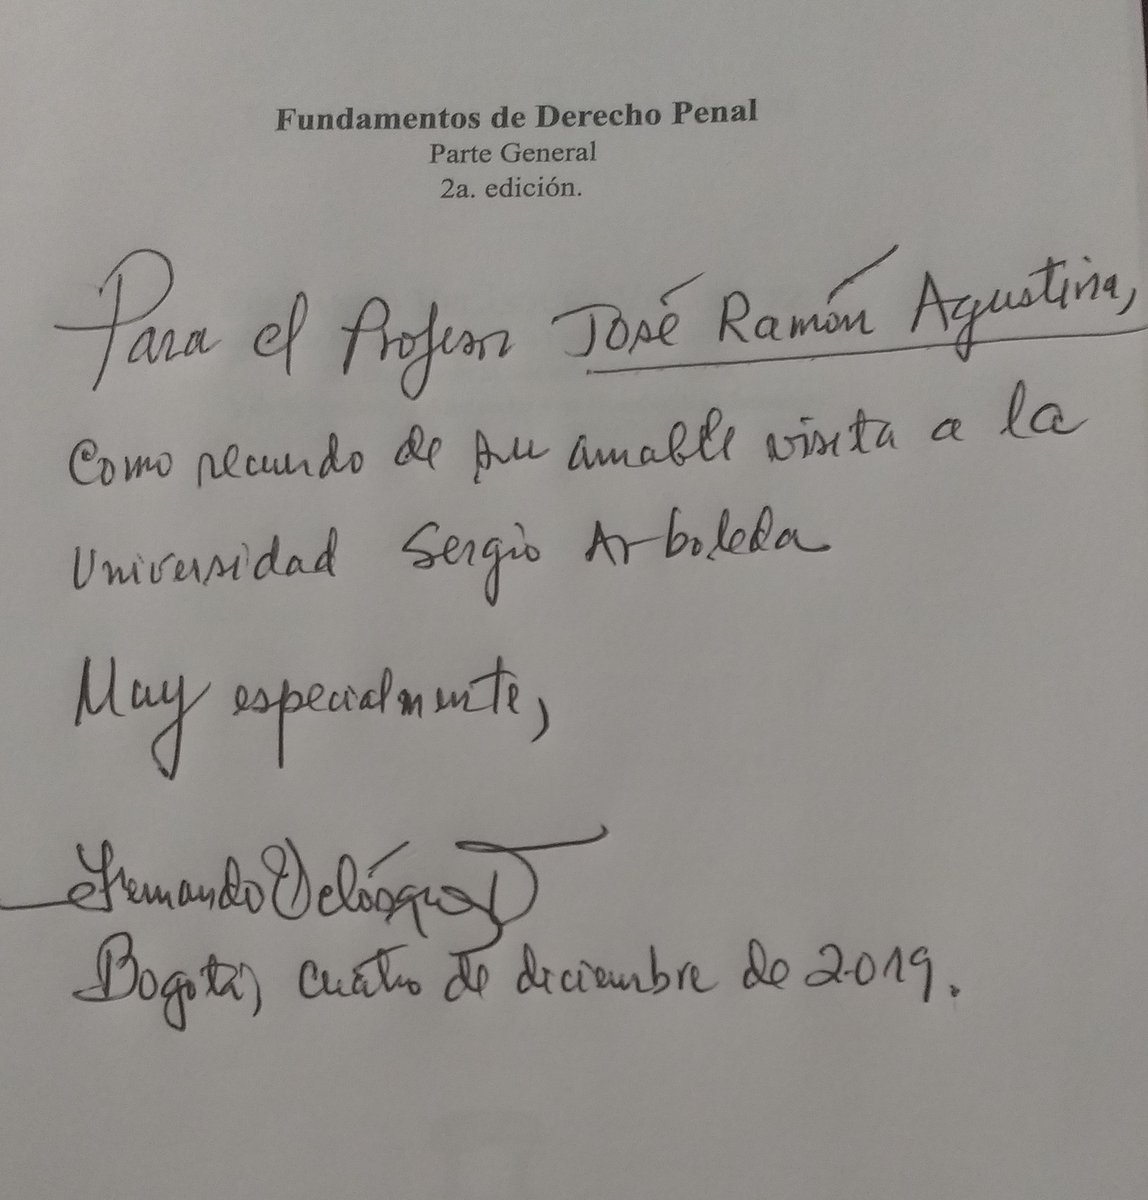 Fundamentos de Derecho Penal
Parte General
2a. edición.
Para el Profesor José Ramón Agustina,
como recuerdo de su amable visita a la
Universidad Sergio Arboleda
Muy especialmente,
Fernando Velásquez
Bogotá, cuatro de diciembre de 2019.